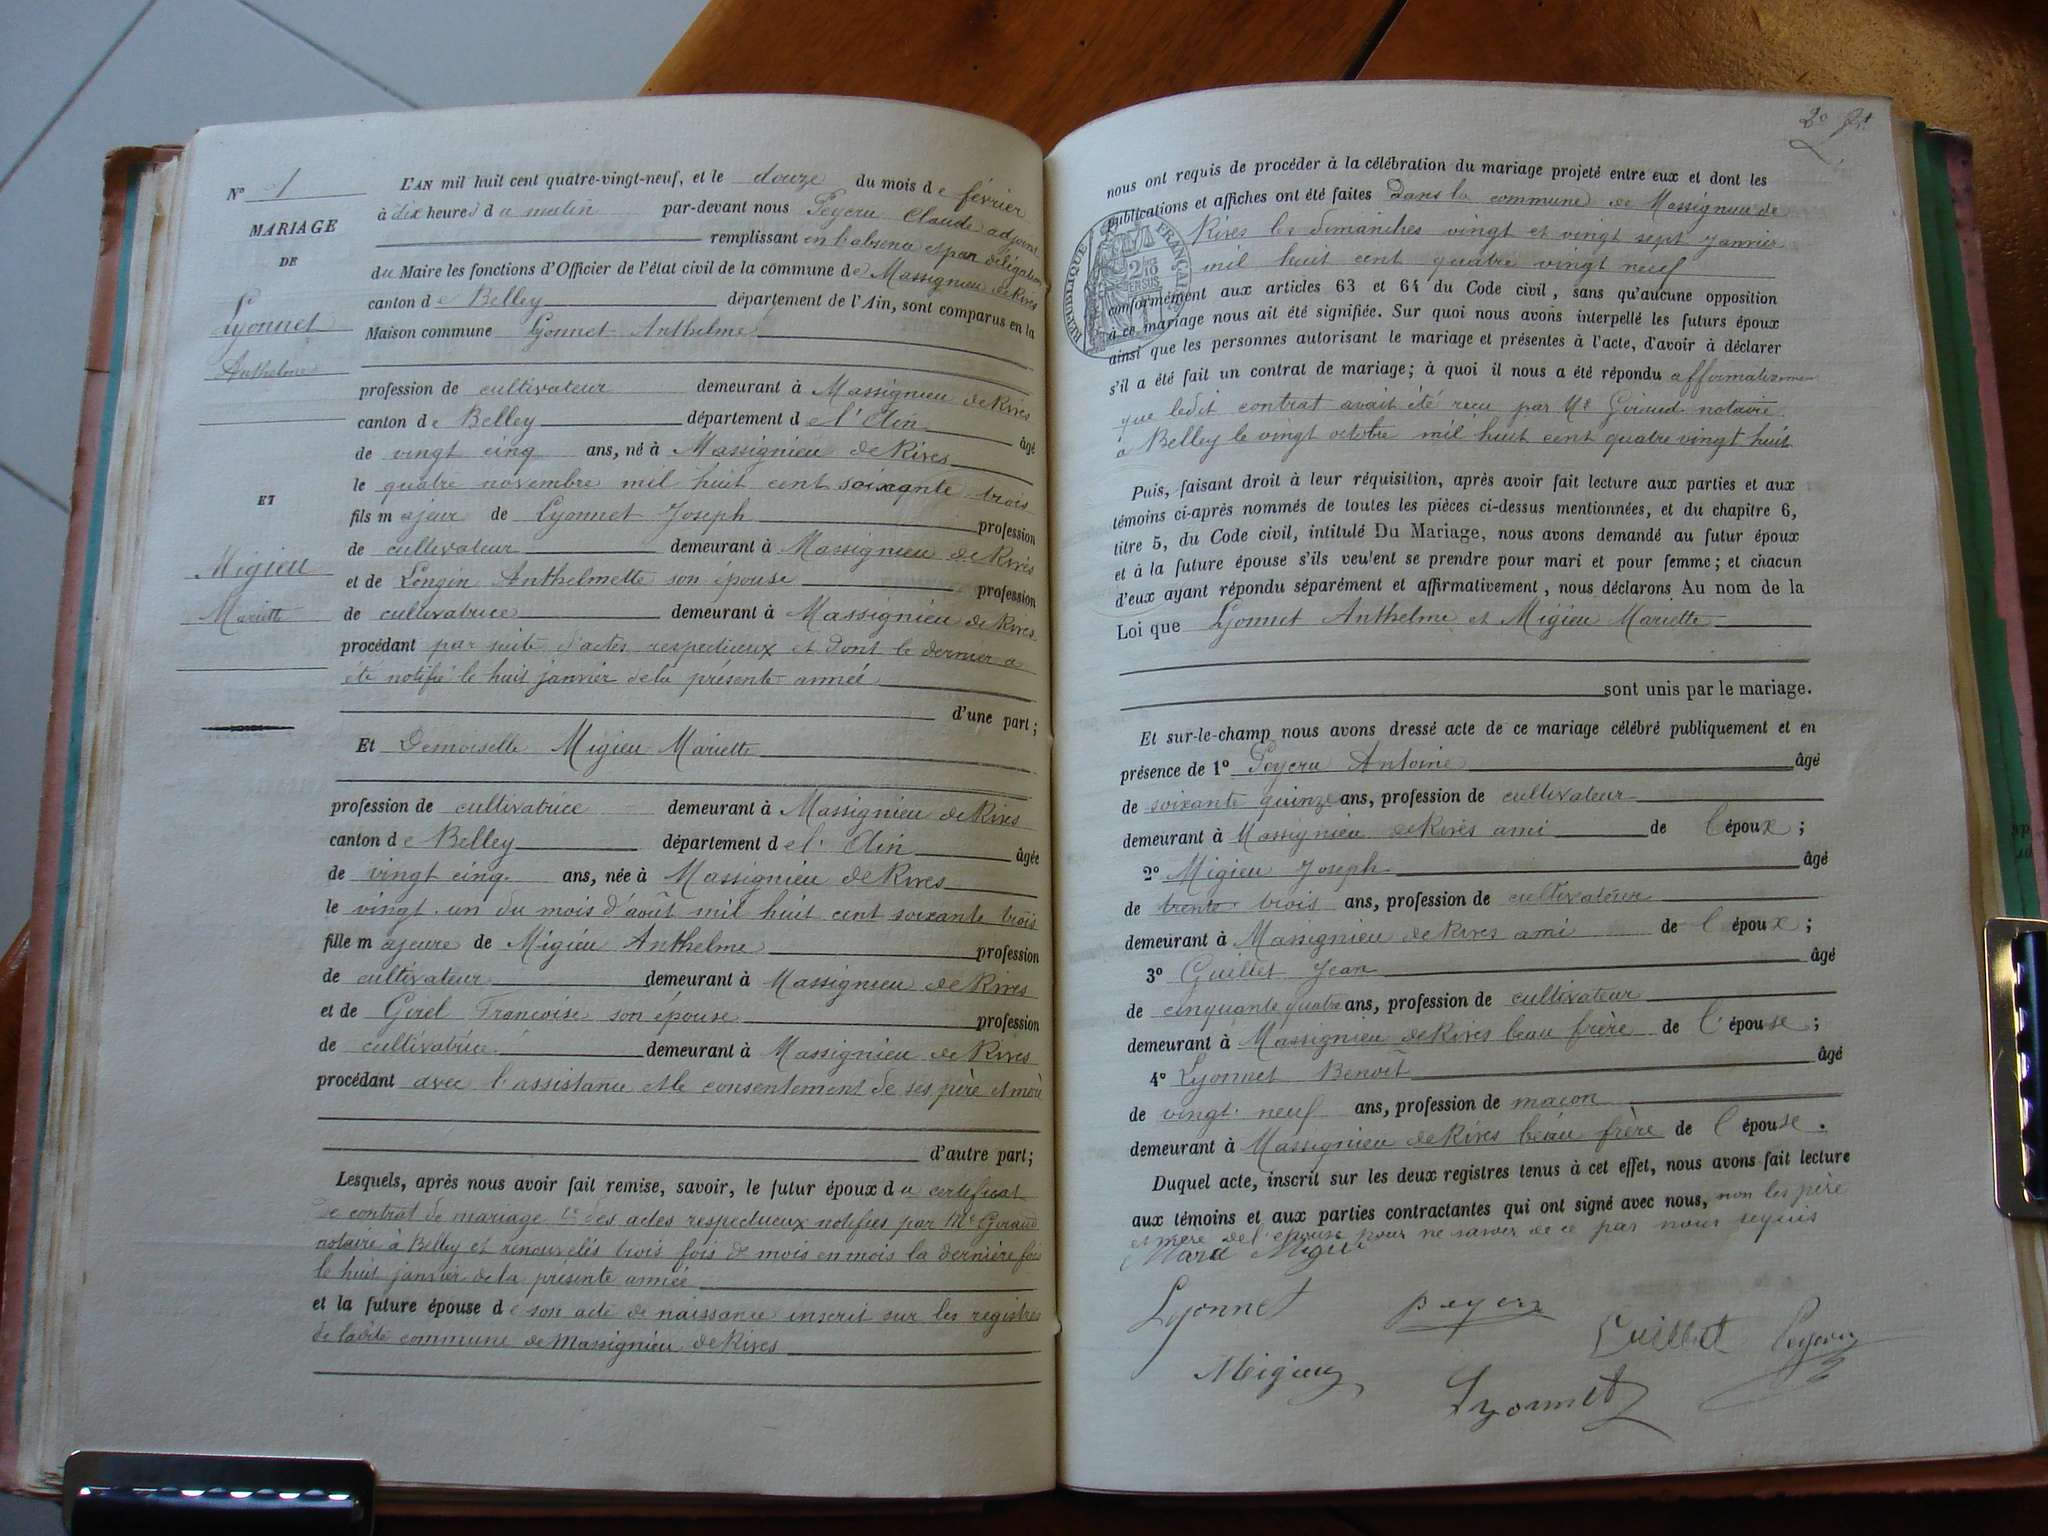 N° 1
MARIAGE
DE
Lyonnet
Anthelme
ET
Migieu
Mariette
L'AN mil huit cent quatre-vingt-neuf, et le douze du mois de février
à dix heures du matin par-devant nous Peycru Claude adjoint
remplissant en l'absence et par délégation
du Maire les fonctions d'Officier de l'état civil de la commune de Massignieu de Rives
canton de Belley département de l'Ain, sont comparus en la
Maison commune Lyonnet Anthelme
profession de cultivateur demeurant à Massignieu de Rives
canton de Belley département de l'Ain âgé
de vingt cinq ans, né à Massignieu de Rives
le quatre novembre mil huit cent soixante trois
fils majeur de Lyonnet Joseph profession
de cultivateur demeurant à Massignieu de Rives
et de Longin Anthelmette son épouse profession
de cultivatrice demeurant à Massignieu de Rives
procédant par suite d'actes respectueux et dont le dernier a
été notifié le huit janvier de la présente année
d'une part;
Et Demoiselle Migieu Mariette
profession de cultivatrice demeurant à Massignieu de Rives
canton de Belley département de l'Ain âgée
de vingt cinq ans, née à Massignieu de Rives
le vingt un du mois d'août mil huit cent soixante trois
fille majeure de Migieu Anthelme profession
de cultivateur demeurant à Massignieu de Rives
et de Girel Francoise son épouse profession
de cultivatrice demeurant à Massignieu de Rives
procédant avec l'assistance et le consentement de ses père et mère
d'autre part;
Lesquels, après nous avoir fait remise, savoir, le futur époux du certificat
de contrat de mariage des actes respectueux notifiés par Me Giraud
notaire à Belley et renouvelés trois fois de mois en mois la dernière fois
le huit janvier de la présente année
et la future épouse de son acte de naissance inscrit sur les registres
de ladite commune de Massignieu de Rives
nous ont requis de procéder à la célébration du mariage projeté entre eux et dont les
publications et affiches ont été faites dans la commune de Massignieu de
Rives les dimanches vingt et vingt sept janvier
mil huit cent quatre vingt neuf
RÉPUBLIQUE FRANÇAISE
2/10 EN SUS
conformément aux articles 63 et 64 du Code civil, sans qu'aucune opposition
à ce mariage nous ait été signifiée. Sur quoi nous avons interpellé les futurs époux
ainsi que les personnes autorisant le mariage et présentes à l'acte, d'avoir à déclarer
s'il a été fait un contrat de mariage; à quoi il nous a été répondu affirmativement
que ledit contrat avait été reçu par Me Giraud notaire
à Belley le vingt octobre mil huit cent quatre vingt huit
Puis, faisant droit à leur réquisition, après avoir fait lecture aux parties et aux
témoins ci-après nommés de toutes les pièces ci-dessus mentionnées, et du chapitre 6,
titre 5, du Code civil, intitulé Du Mariage, nous avons demandé au futur époux
et à la future épouse s'ils veulent se prendre pour mari et pour femme; et chacun
d'eux ayant répondu séparément et affirmativement, nous déclarons Au nom de la
Loi que Lyonnet Anthelme et Migieu Mariette
sont unis par le mariage.
Et sur-le-champ nous avons dressé acte de ce mariage célébré publiquement et en
présence de 1° Peycru Antoine âgé
de soixante quinze ans, profession de cultivateur
demeurant à Massignieu de Rives ami de l'époux;
2° Migieu Joseph âgé
de trente trois ans, profession de cultivateur
demeurant à Massignieu de Rives ami de l'époux;
3° Guillet Jean âgé
de cinquante quatre ans, profession de cultivateur
demeurant à Massignieu de Rives beau frère de l'épouse;
4° Lyonnet Benoît âgé
de vingt neuf ans, profession de maçon
demeurant à Massignieu de Rives beau frère de l'épouse.
Duquel acte, inscrit sur les deux registres tenus à cet effet, nous avons fait lecture
aux témoins et aux parties contractantes qui ont signé avec nous, non les père
et mère de l'épouse pour ne savoir de ce par nous requis
Lyonnet
Meigieu
Lyonnet